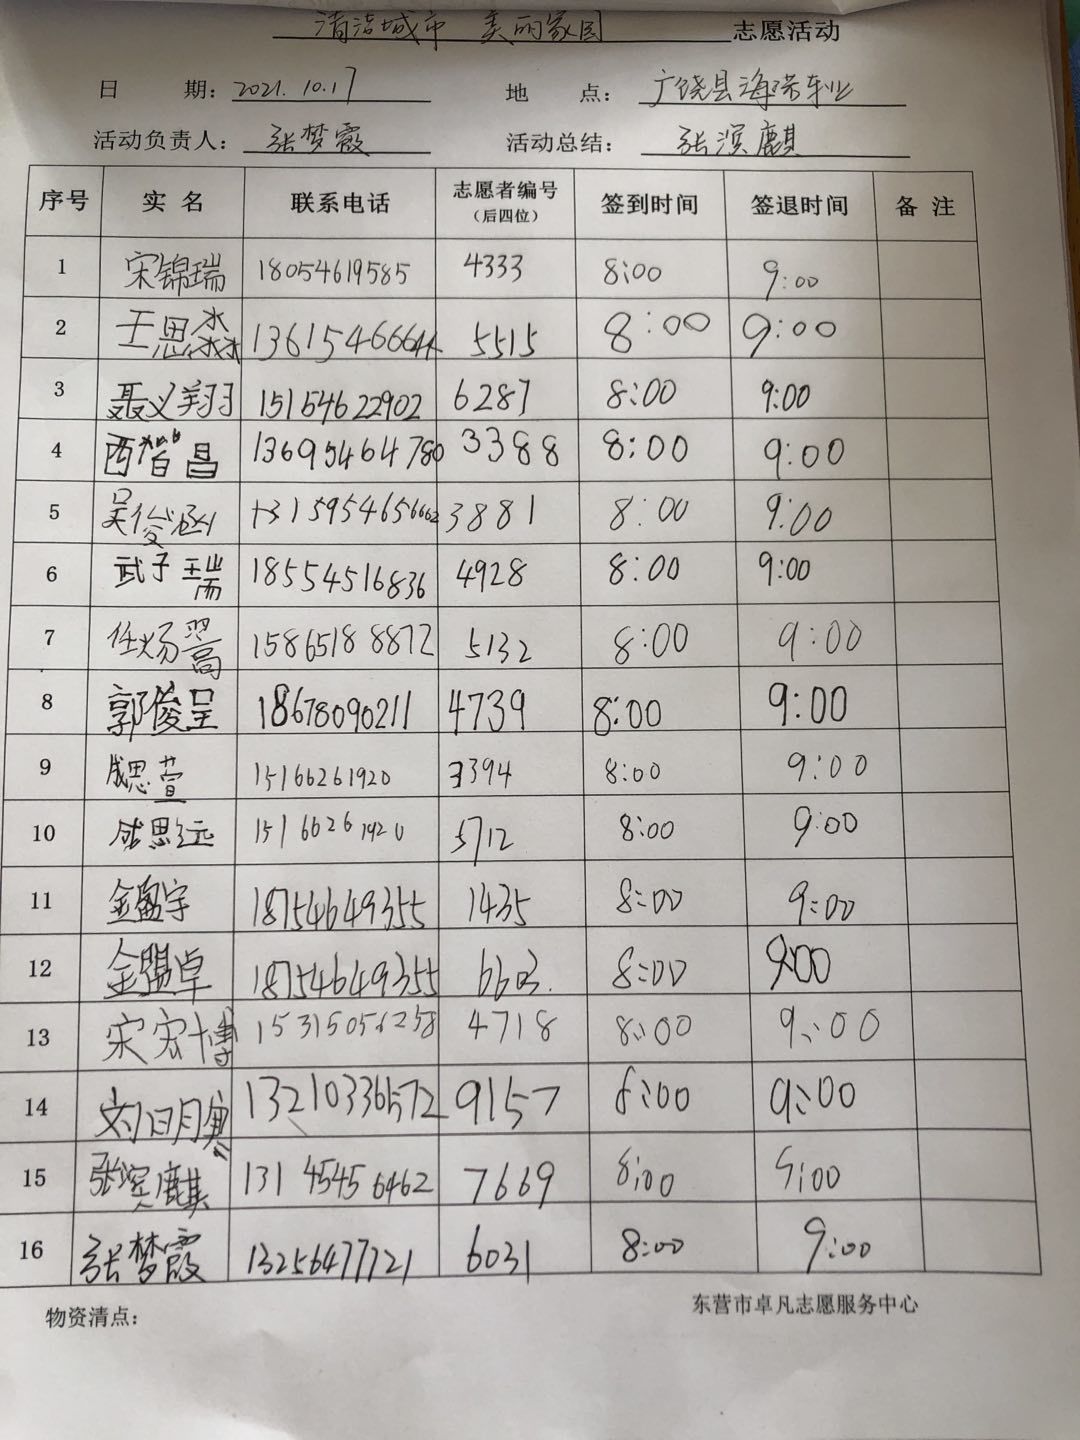 清洁城市 美丽家园 志愿活动
日 期: 2021.10.17 地 点: 广饶县海瑞车业
活动负责人: 张梦霞 活动总结: 张滨麒
序号 实名 联系电话 志愿者编号(后四位) 签到时间 签退时间 备注
1 宋锦瑞 18054619585 4333 8:00 9:00
2 王思淼 5515 8:00 9:00
3 聂义翔 15154622902 6287 8:00 9:00
4 西智昌 13695464780 3388 8:00 9:00
5 吴俊涵 3881 8:00 9:00
6 武子瑞 18554516836 4928 8:00 9:00
7 任炀翯 15865188872 5132 8:00 9:00
8 郭俊呈 18678090211 4739 8:00 9:00
9 成思萱 15166261920 3394 8:00 9:00
10 成思远 15166261920 5712 8:00 9:00
11 18754649355 1435 8:00 9:00
12 18754649355 6603. 8:00 9:00
13 宋宏博 15315056258 4718 8:00 9:00
14 13210336572 9157 8:00 9:00
15 张滨麒 13145456462 7669 8:00 9:00
16 张梦霞 13256477721 6031 8:00 9:00
物资清点: 东营市卓凡志愿服务中心